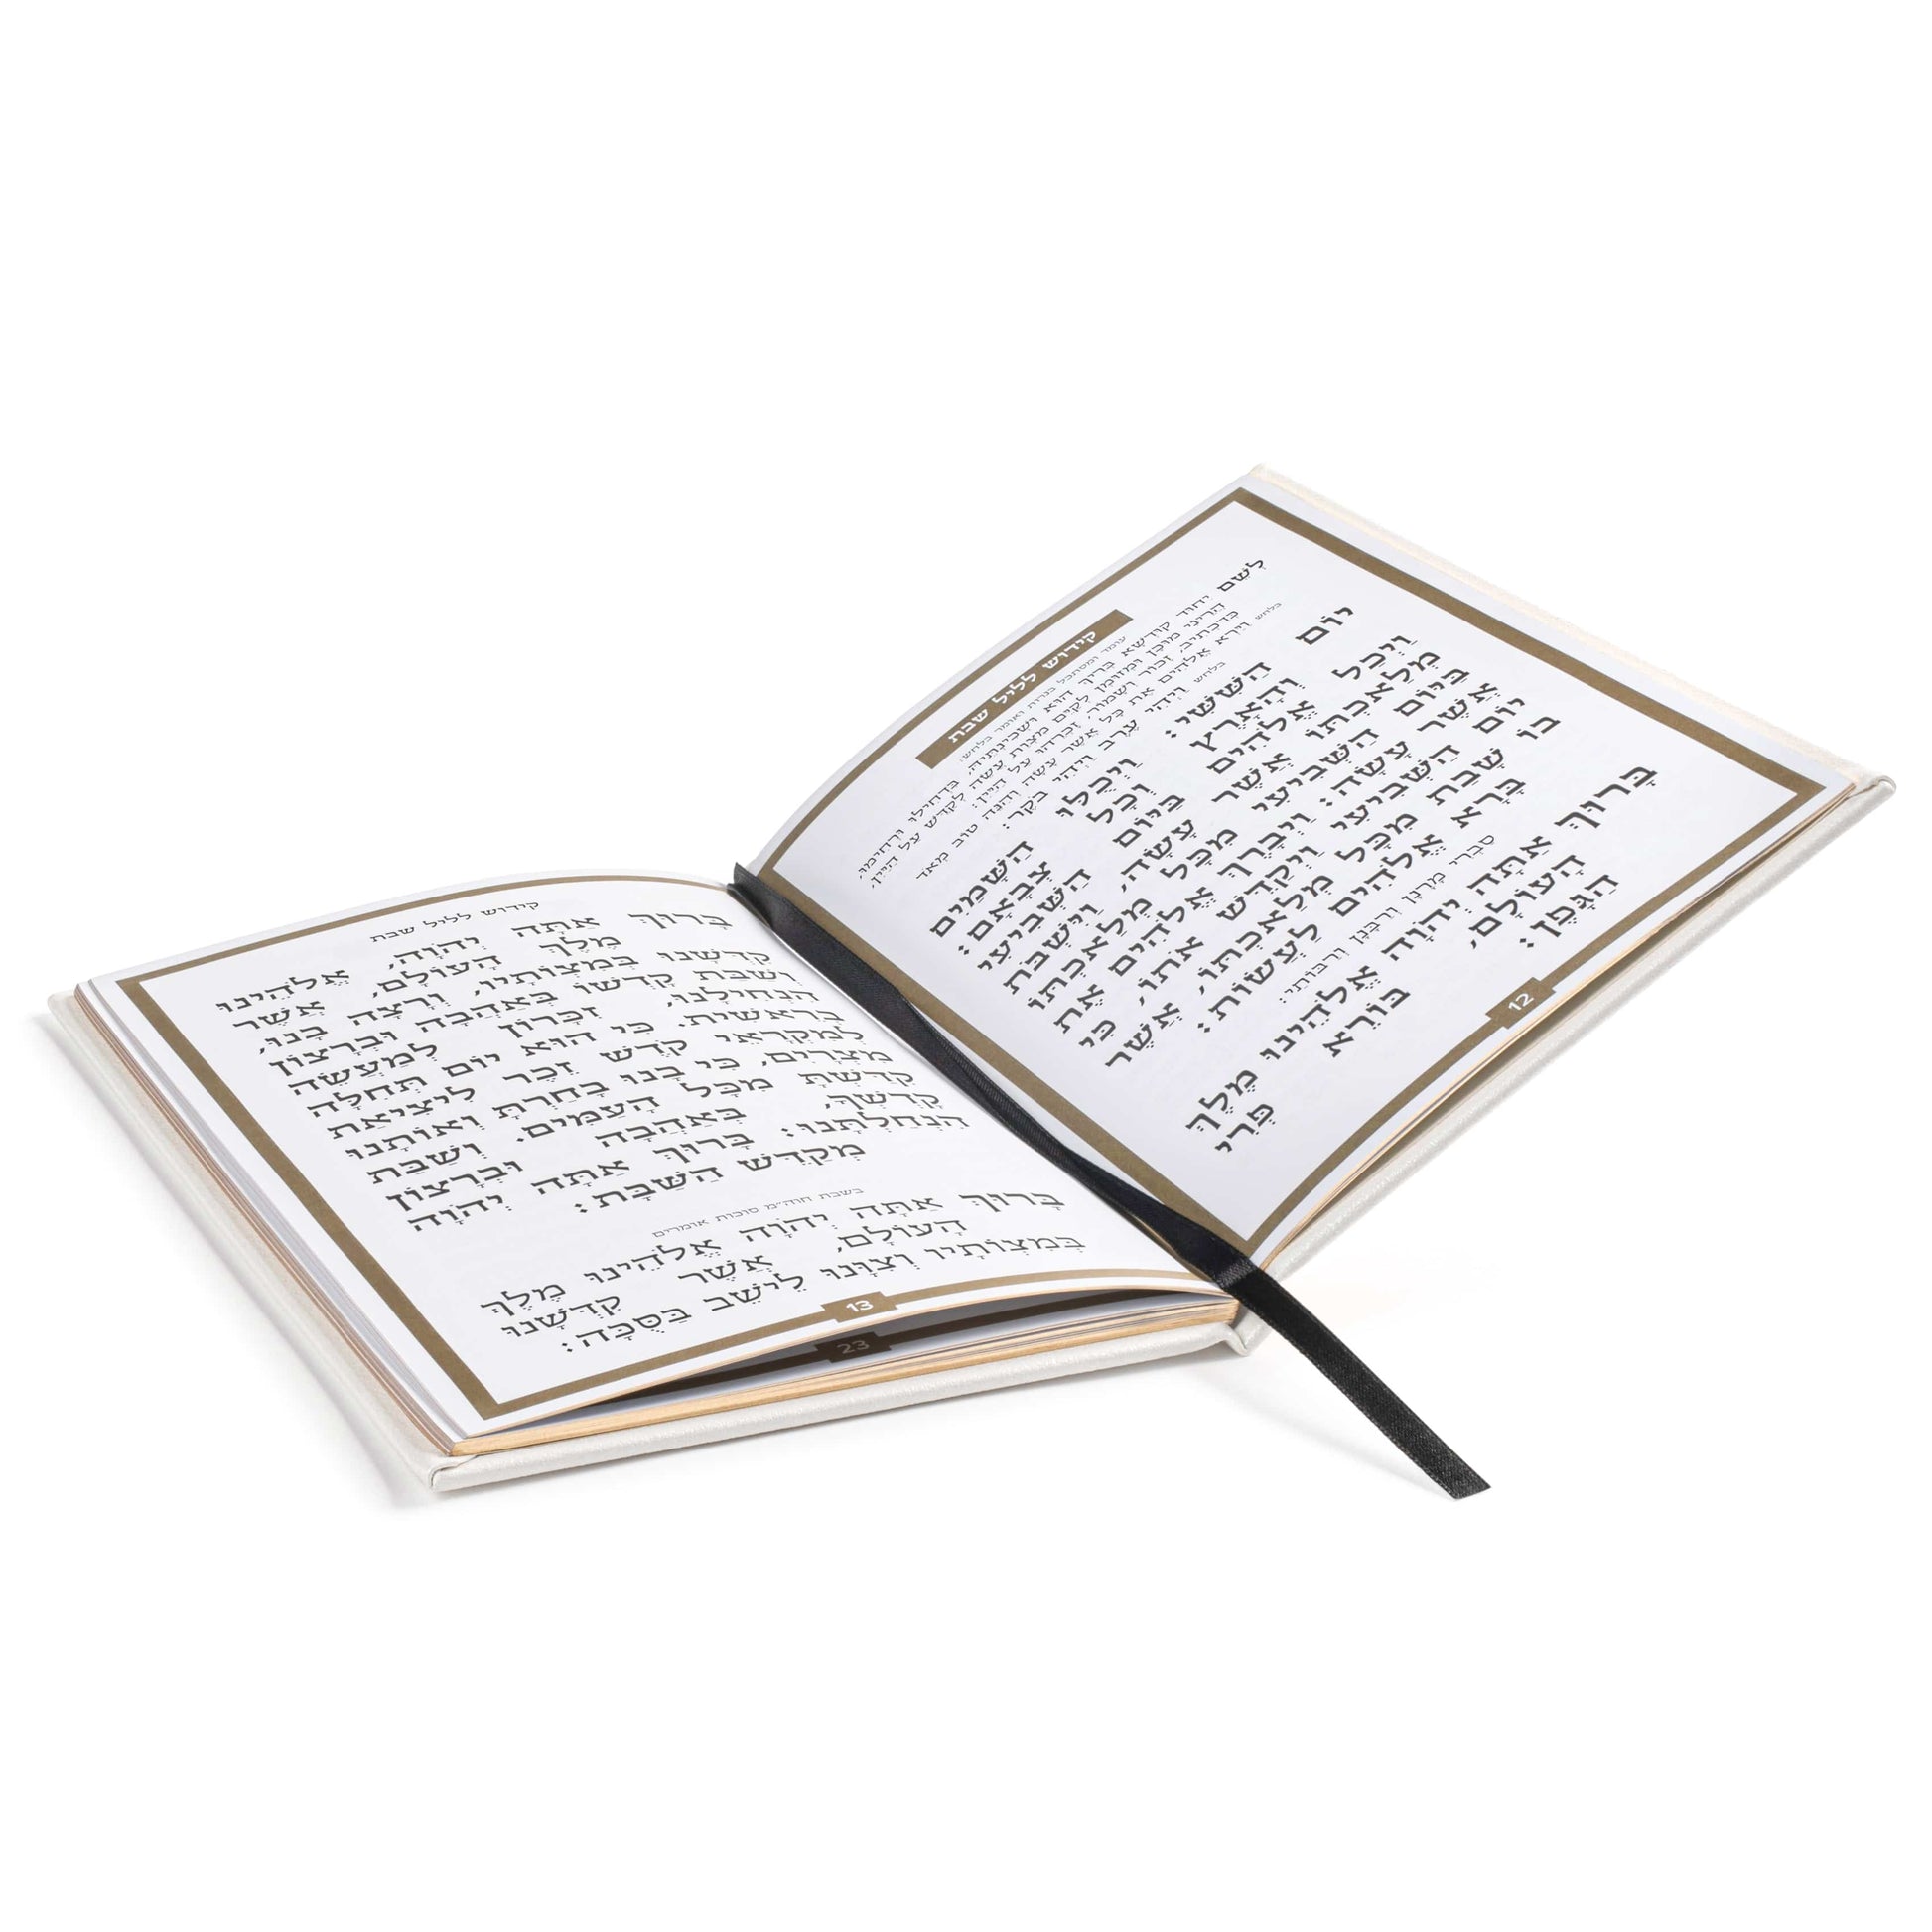 קידוש לליל שבת
עומד ומסתכל בנרות ואומר בלחש:
לְשֵׁם יחוד קודשא בריך הוא ושכינתיה, בדחילו ורחימו,
הריני מוכן ומזומן לקיים מצות עשה לקדש על היין,
כדכתיב, זכור ושמור, זכרהו על היין:
בלחש וירא אלהים את כל אשר עשה והנה טוב מאד
בלחש ויהי ערב ויהי בקר:
יוֹם הַשִּׁשִּׁי: וַיְכֻלּוּ הַשָּׁמַיִם
וְהָאָרֶץ וְכָל צְבָאָם:
וַיְכַל אֱלֹהִים בַּיּוֹם הַשְּׁבִיעִי
מְלַאכְתּוֹ אֲשֶׁר עָשָׂה, וַיִּשְׁבֹּת
בַּיּוֹם הַשְּׁבִיעִי מִכָּל מְלַאכְתּוֹ
אֲשֶׁר עָשָׂה: וַיְבָרֶךְ אֱלֹהִים אֶת
יוֹם הַשְּׁבִיעִי וַיְקַדֵּשׁ אֹתוֹ, כִּי
בוֹ שָׁבַת מִכָּל מְלַאכְתּוֹ, אֲשֶׁר
בָּרָא אֱלֹהִים לַעֲשׂוֹת:
סַבְרִי מָרָנָן וְרַבָּנָן וְרַבּוֹתַי:
בָּרוּךְ אַתָּה יְהֹוָה אֱלֹהֵינוּ מֶלֶךְ
הָעוֹלָם, בּוֹרֵא פְּרִי
הַגֶּפֶן:
12
קידוש לליל שבת
בָּרוּךְ אַתָּה יְהֹוָה, אֱלֹהֵינוּ
מֶלֶךְ הָעוֹלָם, אֲשֶׁר
קִדְּשָׁנוּ בְּמִצְוֹתָיו, וְרָצָה בָנוּ,
וְשַׁבַּת קָדְשׁוֹ בְּאַהֲבָה וּבְרָצוֹן
הִנְחִילָנוּ, זִכָּרוֹן לְמַעֲשֵׂה
בְרֵאשִׁית. כִּי הוּא יוֹם תְּחִלָּה
לְמִקְרָאֵי קֹדֶשׁ זֵכֶר לִיצִיאַת
מִצְרָיִם, כִּי בָנוּ בָחַרְתָּ וְאוֹתָנוּ
קִדַּשְׁתָּ מִכָּל הָעַמִּים. וְשַׁבַּת
קָדְשְׁךָ, בְּאַהֲבָה וּבְרָצוֹן
הִנְחַלְתָּנוּ: בָּרוּךְ אַתָּה יְהֹוָה
מְקַדֵּשׁ הַשַּׁבָּת:
בשבת חוה״מ סוכות אומרים
בָּרוּךְ אַתָּה יְהֹוָה אֱלֹהֵינוּ מֶלֶךְ
הָעוֹלָם, אֲשֶׁר קִדְּשָׁנוּ
בְּמִצְוֹתָיו וְצִוָּנוּ לֵישֵׁב בַּסֻּכָּה:
13
23